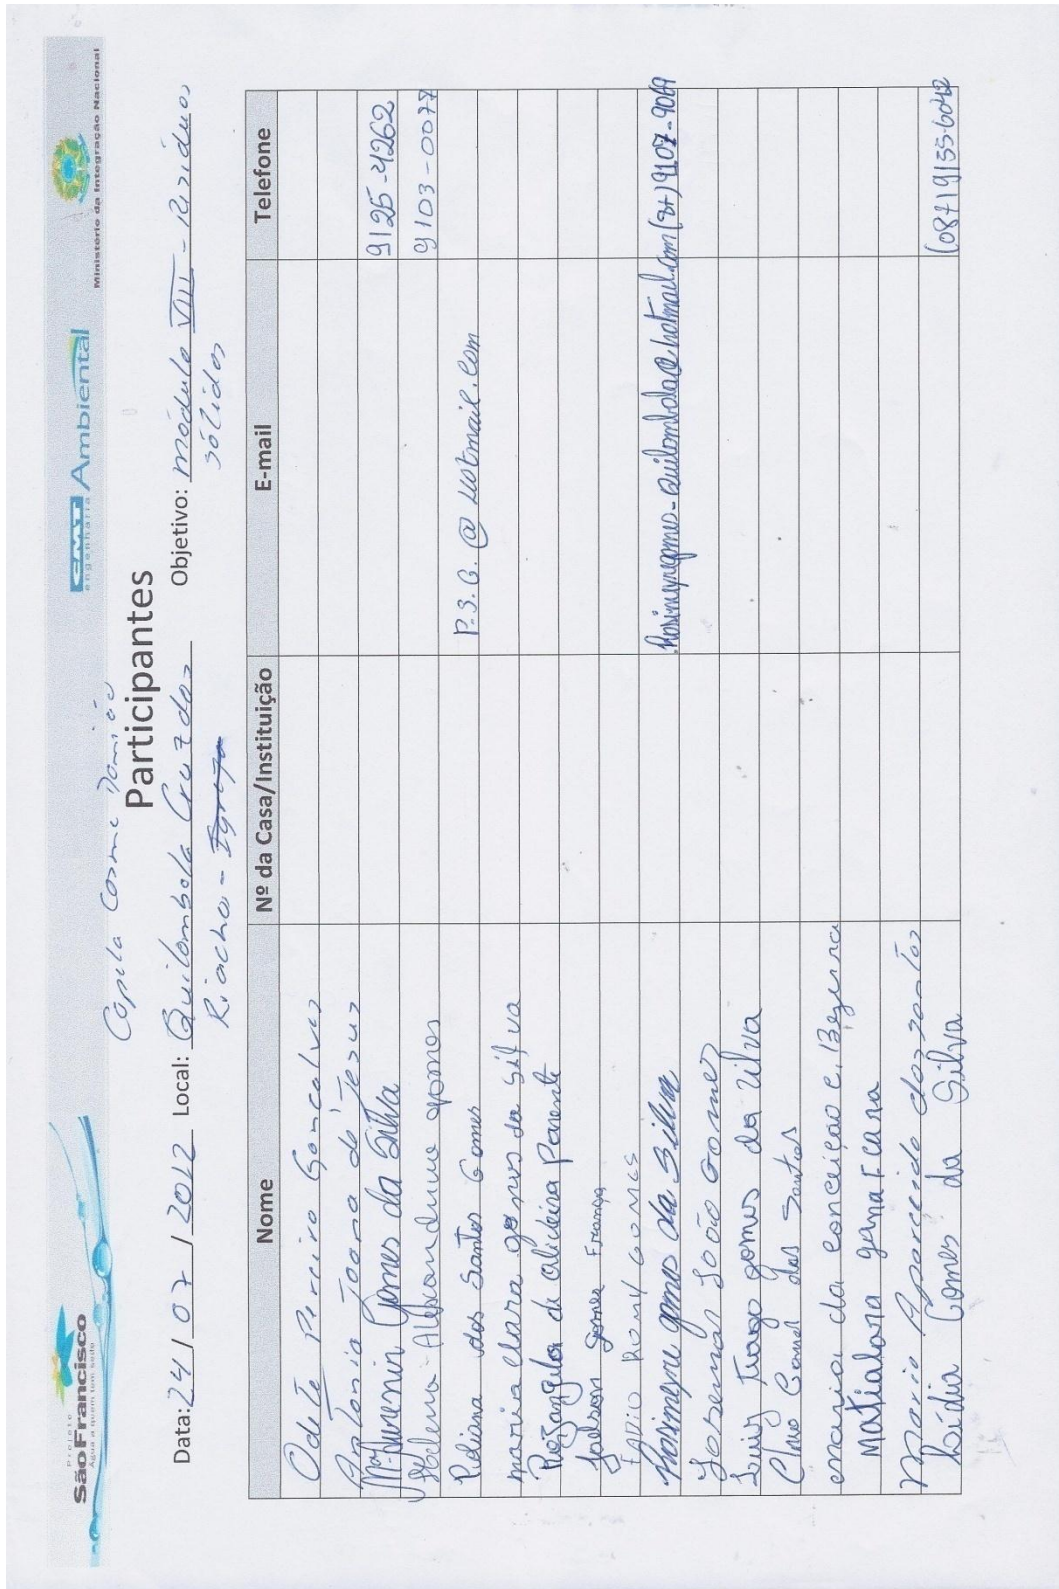 Projeto
São Francisco
Água a quem tem sede
CMT Ambiental
engenharia
Ministério da Integração Nacional
Capela Cosme Damião
Participantes
Data: 24 / 07 / 2012 Local: Quilombola Cruz dos Objetivo: módulo VIII - Resíduos
Riacho - sólidos
Nome Nº da Casa/Instituição E-mail Telefone
Odete Pereira Gonçalves
Antonia Joana de Jesus
Gomes da Silva 9125-4262
Helena Alexandrina gomes 9103-0077
Poliana dos Santos Gomes P.S.G.@Hotmail.com
maria clara gomes da Silva
Rozangela de Oliveira Parente
Jadson gomes França
FAVIO RONY GOMES
Rosineyre gomes da Silva Rosineyregomes-quilombola@hotmail.com (87)9107-9069
Josemar João Gomes
Luiz Tiago gomes da silva
Gomes dos Santos
maria da conceição e. Bezerra
Maria Aparecida dos santos
Lídia Gomes da Silva (087)9155-6042